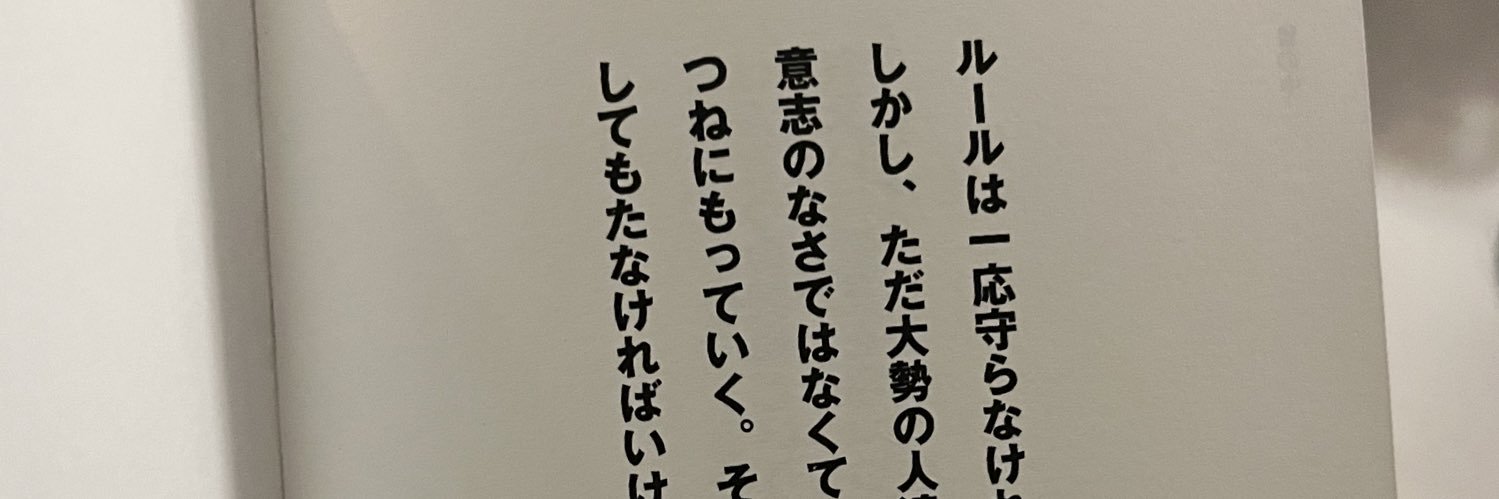 ルールは一応守らなけ
しかし、ただ大勢の人
意志のなさではなくて
つねにもっていく。そ
してもたなければいけ